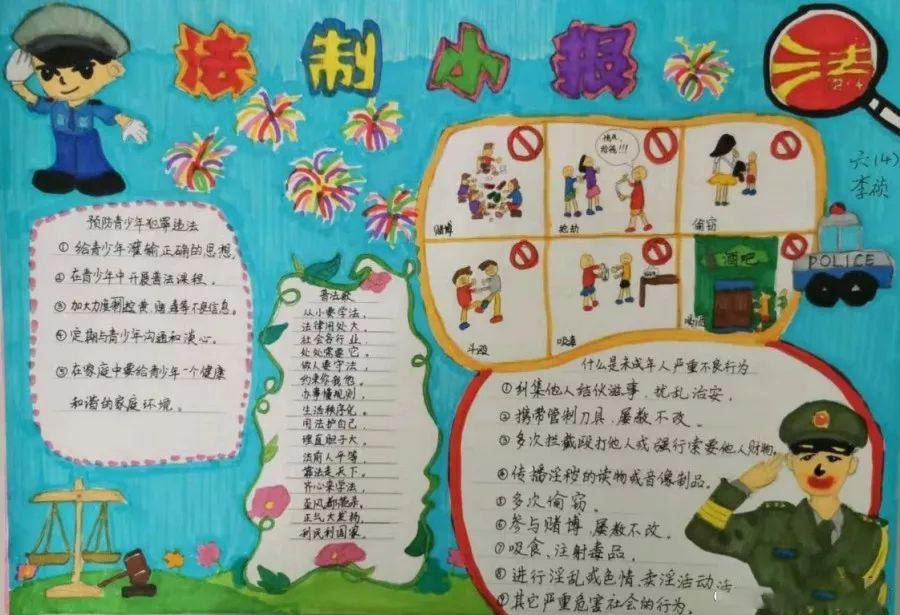 法制小报
法
12·4
六(4)
李祯
预防青少年犯罪违法
①给青少年灌输正确的思想。
②在青少年中开展普法课程。
③加大力度制控黄、赌毒等不良信息。
④定期与青少年沟通和谈心。
⑤在家庭中要给青少年一个健康
和谐的家庭环境。
普法歌
从小要学法,
法律用处大。
社会各行业,
处处需要它。
做人要守法,
约束你我他。
办事懂规则,
生活秩序化。
用法护自己,
理直胆子大。
法前人平等
靠法走天下。
齐心来学法,
歪风都荡杀。
正气大发扬,
利民利国家。
赌博
抢劫
给钱!!!
偷窃
斗殴
吸毒
酒吧
POLICE
什么是未成年人严重不良行为
①纠集他人结伙滋事,扰乱治安。
②携带管制刀具,屡教不改。
③多次拦截殴打他人或强行索要他人财物。
④传播淫秽的读物或音像制品。
⑤多次偷窃。
⑥参与赌博,屡教不改。
⑦吸食、注射毒品。
⑧进行淫乱或色情、卖淫活动
⑨其它严重危害社会的行为。